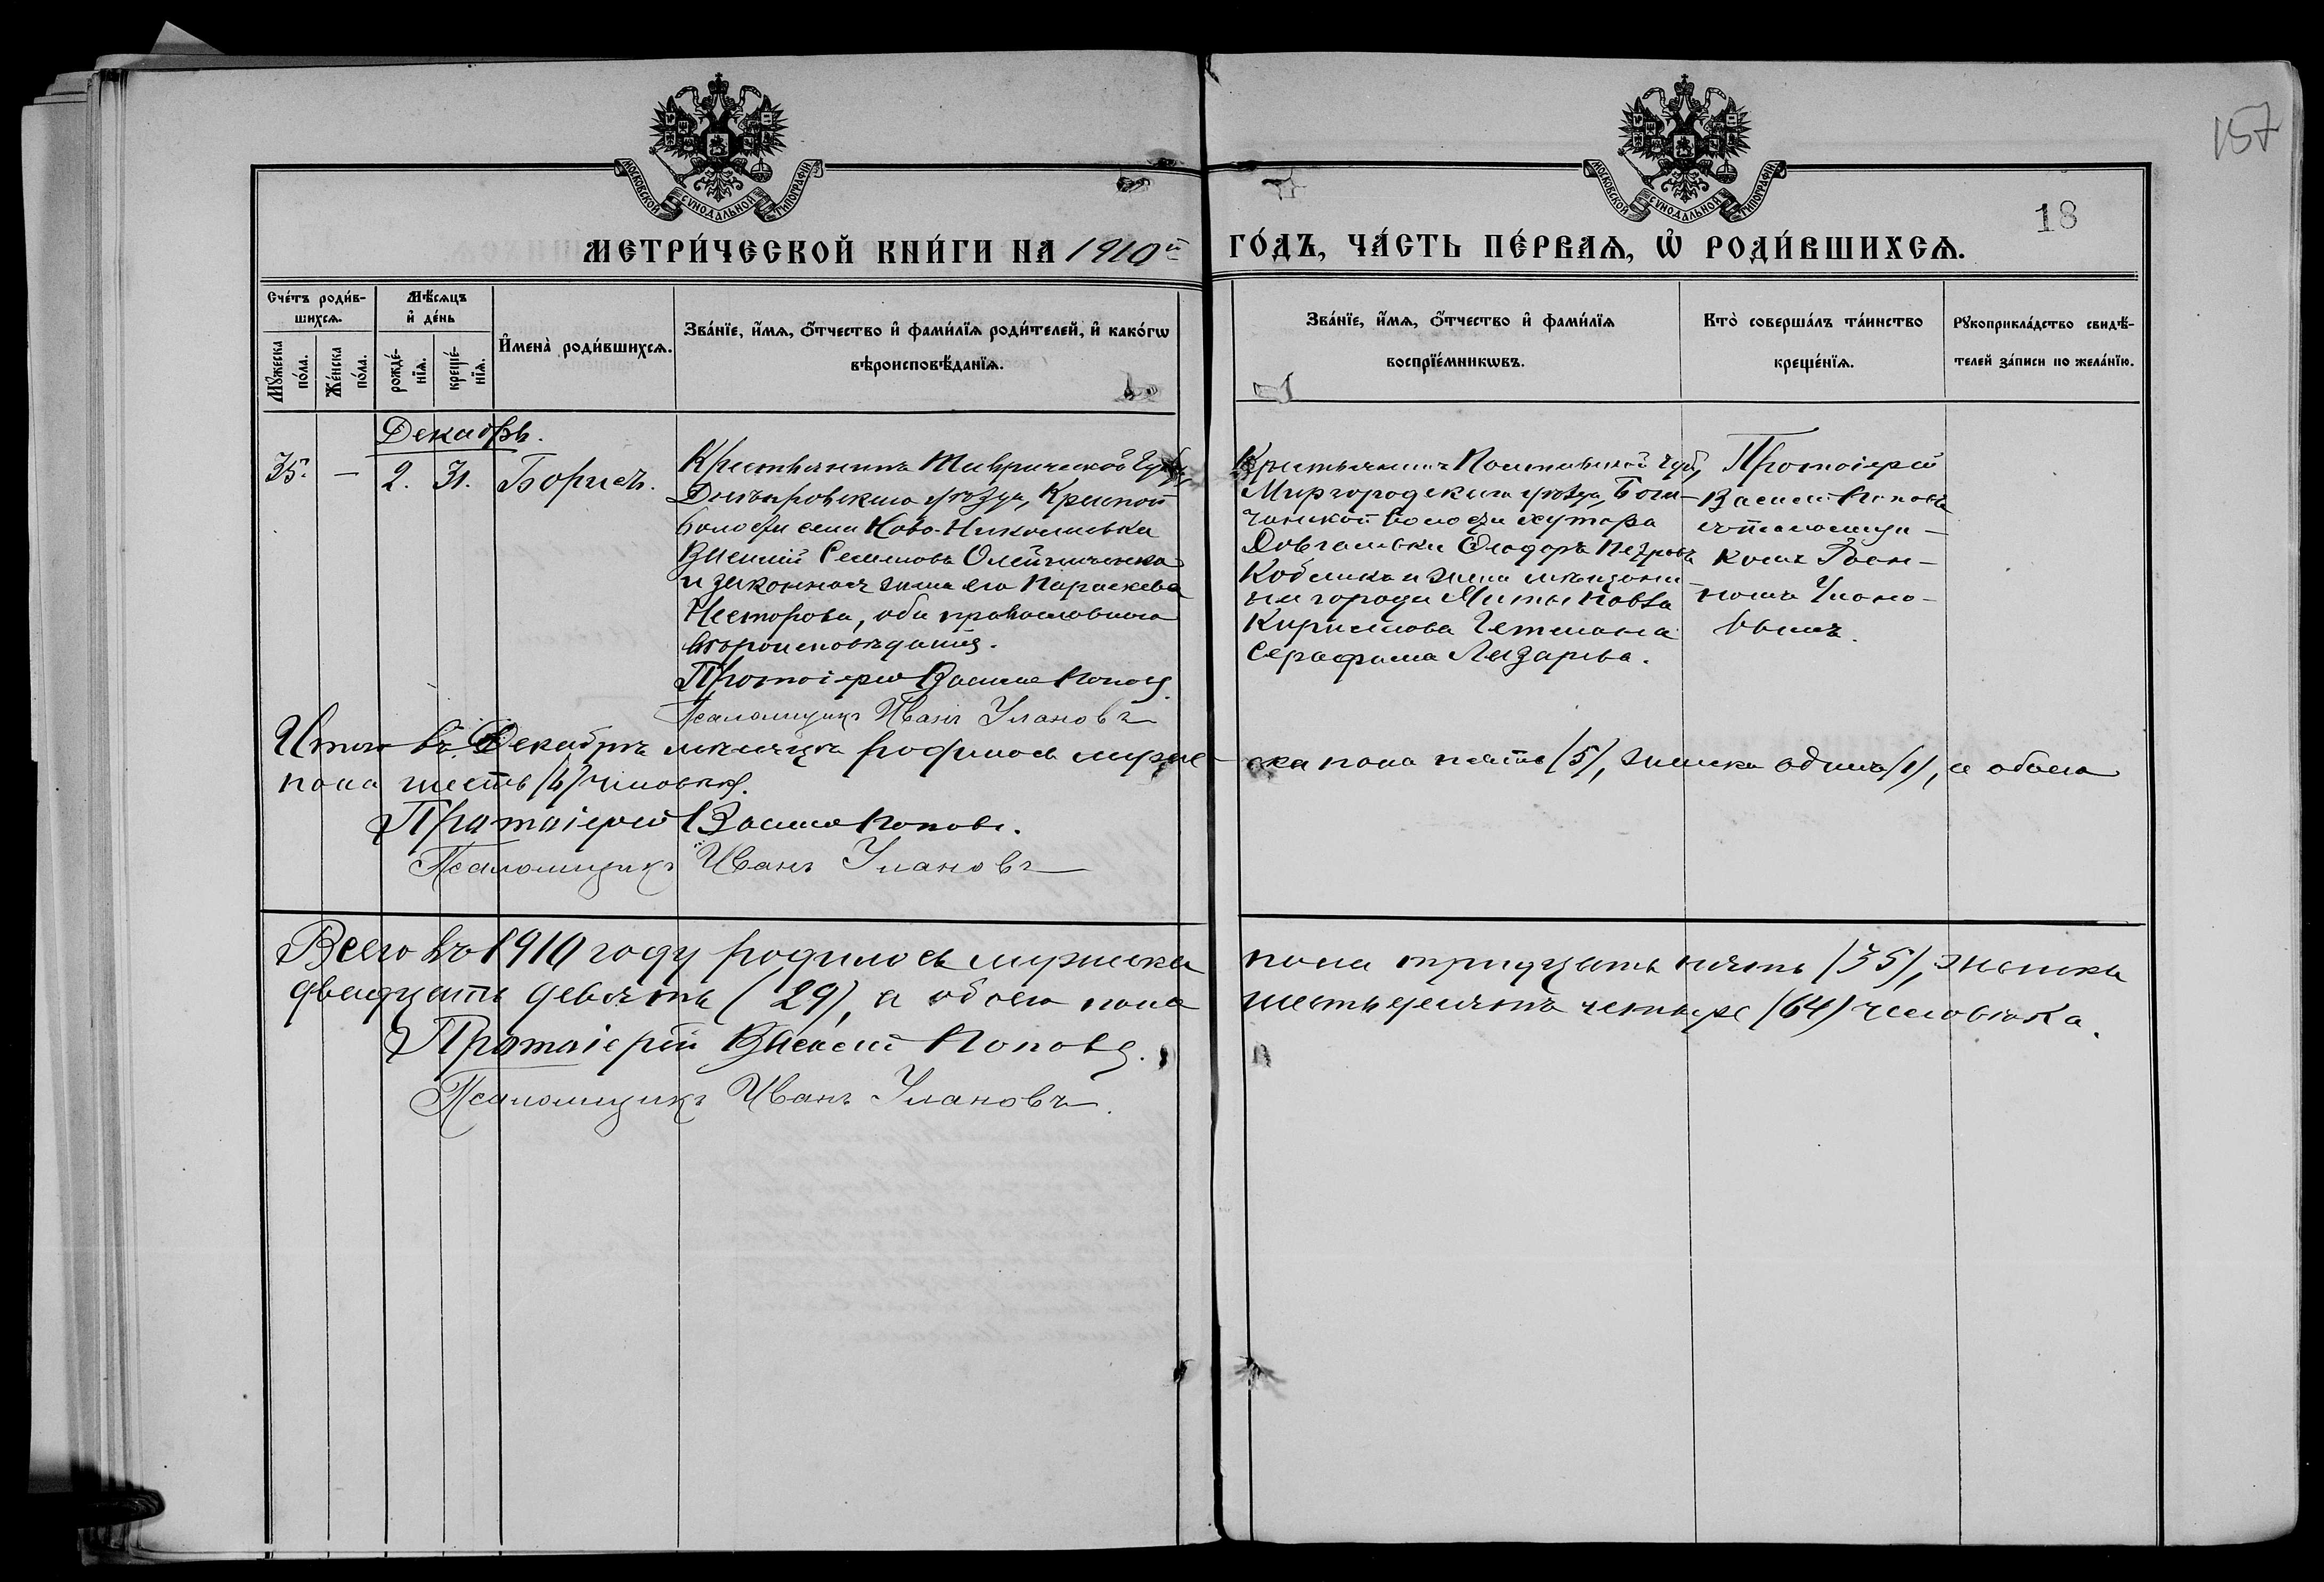 157
МОСКОВСКОЙ СѴНОДАЛЬНОЙ ТИПОГРАФІИ
МОСКОВСКОЙ СѴНОДАЛЬНОЙ ТИПОГРАФІИ
18
МЕТРИ́ЧЕСКОЙ КНИ́ГИ НА 1910й ГО́ДЪ, ЧА́СТЬ ПЕ́РВАѦ, Ѡ҆ РОДИ́ВШИХСѦ.
Сче́тъ роди́в-
шихсѧ.
Мꙋ́жеска по́ла.
Же́нска по́ла.
Мѣ́сѧцъ
и҆ де́нь
рожде́-
нїѧ.
креще́-
нїѧ.
И҆мена̀ роди́вшихсѧ.
Зва́нїе, и҆́мѧ, ѻ҆́тчество и҆ фами́лїѧ роди́телей, и҆ како́гѡ
вѣроисповѣ́данїѧ.
Зва́нїе, и҆́мѧ, ѻ҆́тчество и҆ фами́лїѧ
воспрїе́мникѡвъ.
Кто̀ соверша́лъ та́инство
креще́нїѧ.
Рꙋкоприкла́дство свидѣ́-
телей за́писи по жела́нїю.
Декабрь.
35. — 2. 31. Борисъ.
Крестьянинъ Таврической Губ.
Днѣпровскаго уѣзда, Красной
волости села Ново-Николаевки
Василій Семеновъ Олейниченко
и законная жена его Параскева
Несторова, оба православнаго
вѣроисповѣданія.
Протоіерей Василій Поповъ
Псаломщикъ Иванъ Улановъ
Крестьянинъ Полтавской губ,
Миргородскаго уѣзда, Бога-
чанской волости хутора
Довгалевки Ѳеодоръ Петровъ
Кобелика и жена мѣщани-
на города Павла
Кириллова Гетмана
Серафима Лазарева.
Протоіерей
Василій Поповъ
съ псаломщи-
комъ Іоан-
номъ Улано-
вымъ.
Итого въ Декабрѣ мѣсяцѣ родилось муже- ска пола пять (5), женска одинъ (1), а обоего
пола шесть (6) человѣкъ.
Протоіерей Василій Поповъ.
Псаломщикъ Иванъ Улановъ
Всего въ 1910 году родилось мужеска пола тридцать пять (35), женска
двадцать девять (29), а обоего пола шестьдесятъ четыре (64) человѣка.
Протоіерей Василій Поповъ.
Псаломщикъ Иванъ Улановъ.